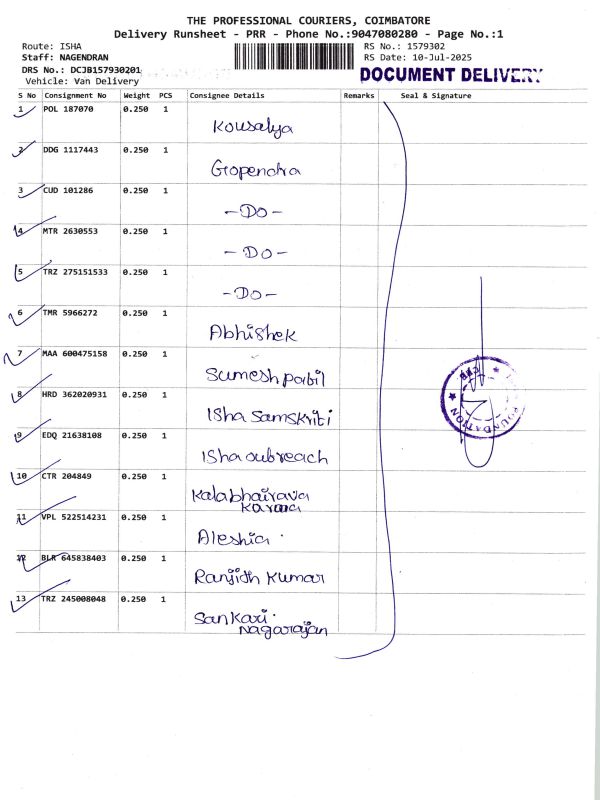 THE PROFESSIONAL COURIERS, COIMBATORE
Delivery Runsheet - PRR - Phone No.:9047080280 - Page No.:1
Route: ISHA
Staff: NAGENDRAN
DRS No.: DCJB157930201
Vehicle: Van Delivery
RS No.: 1579302
RS Date: 10-Jul-2025
DOCUMENT DELIVERY
S No Consignment No Weight PCS Consignee Details Remarks Seal & Signature
1 POL 187070 0.250 1
Kousalya
2 DDG 1117443 0.250 1
Gopendra
3 CUD 101286 0.250 1
-Do-
4 MTR 2630553 0.250 1
-Do-
5 TRZ 275151533 0.250 1
-Do-
6 TMR 5966272 0.250 1
Abhishek
7 MAA 600475158 0.250 1
Sumesh patil
8 HRD 362020931 0.250 1
Isha Samskriti
9 EDQ 21638108 0.250 1
Isha outreach
10 CTR 204849 0.250 1
Kalabhairava
Karma
11 VPL 522514231 0.250 1
Aleshia
12 BLR 645838403 0.250 1
Ranjith Kumar
13 TRZ 245008048 0.250 1
Sankari
Nagarajan
FOUNDATION